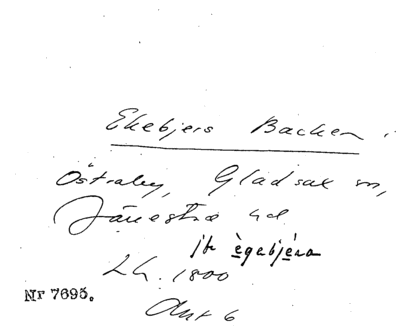 Ekebjers Backen.
Östraby, Gladsax sn,
Järrestads hd
jfr ègabjéra
LG. 1800
Nr 7695.
Akt 6